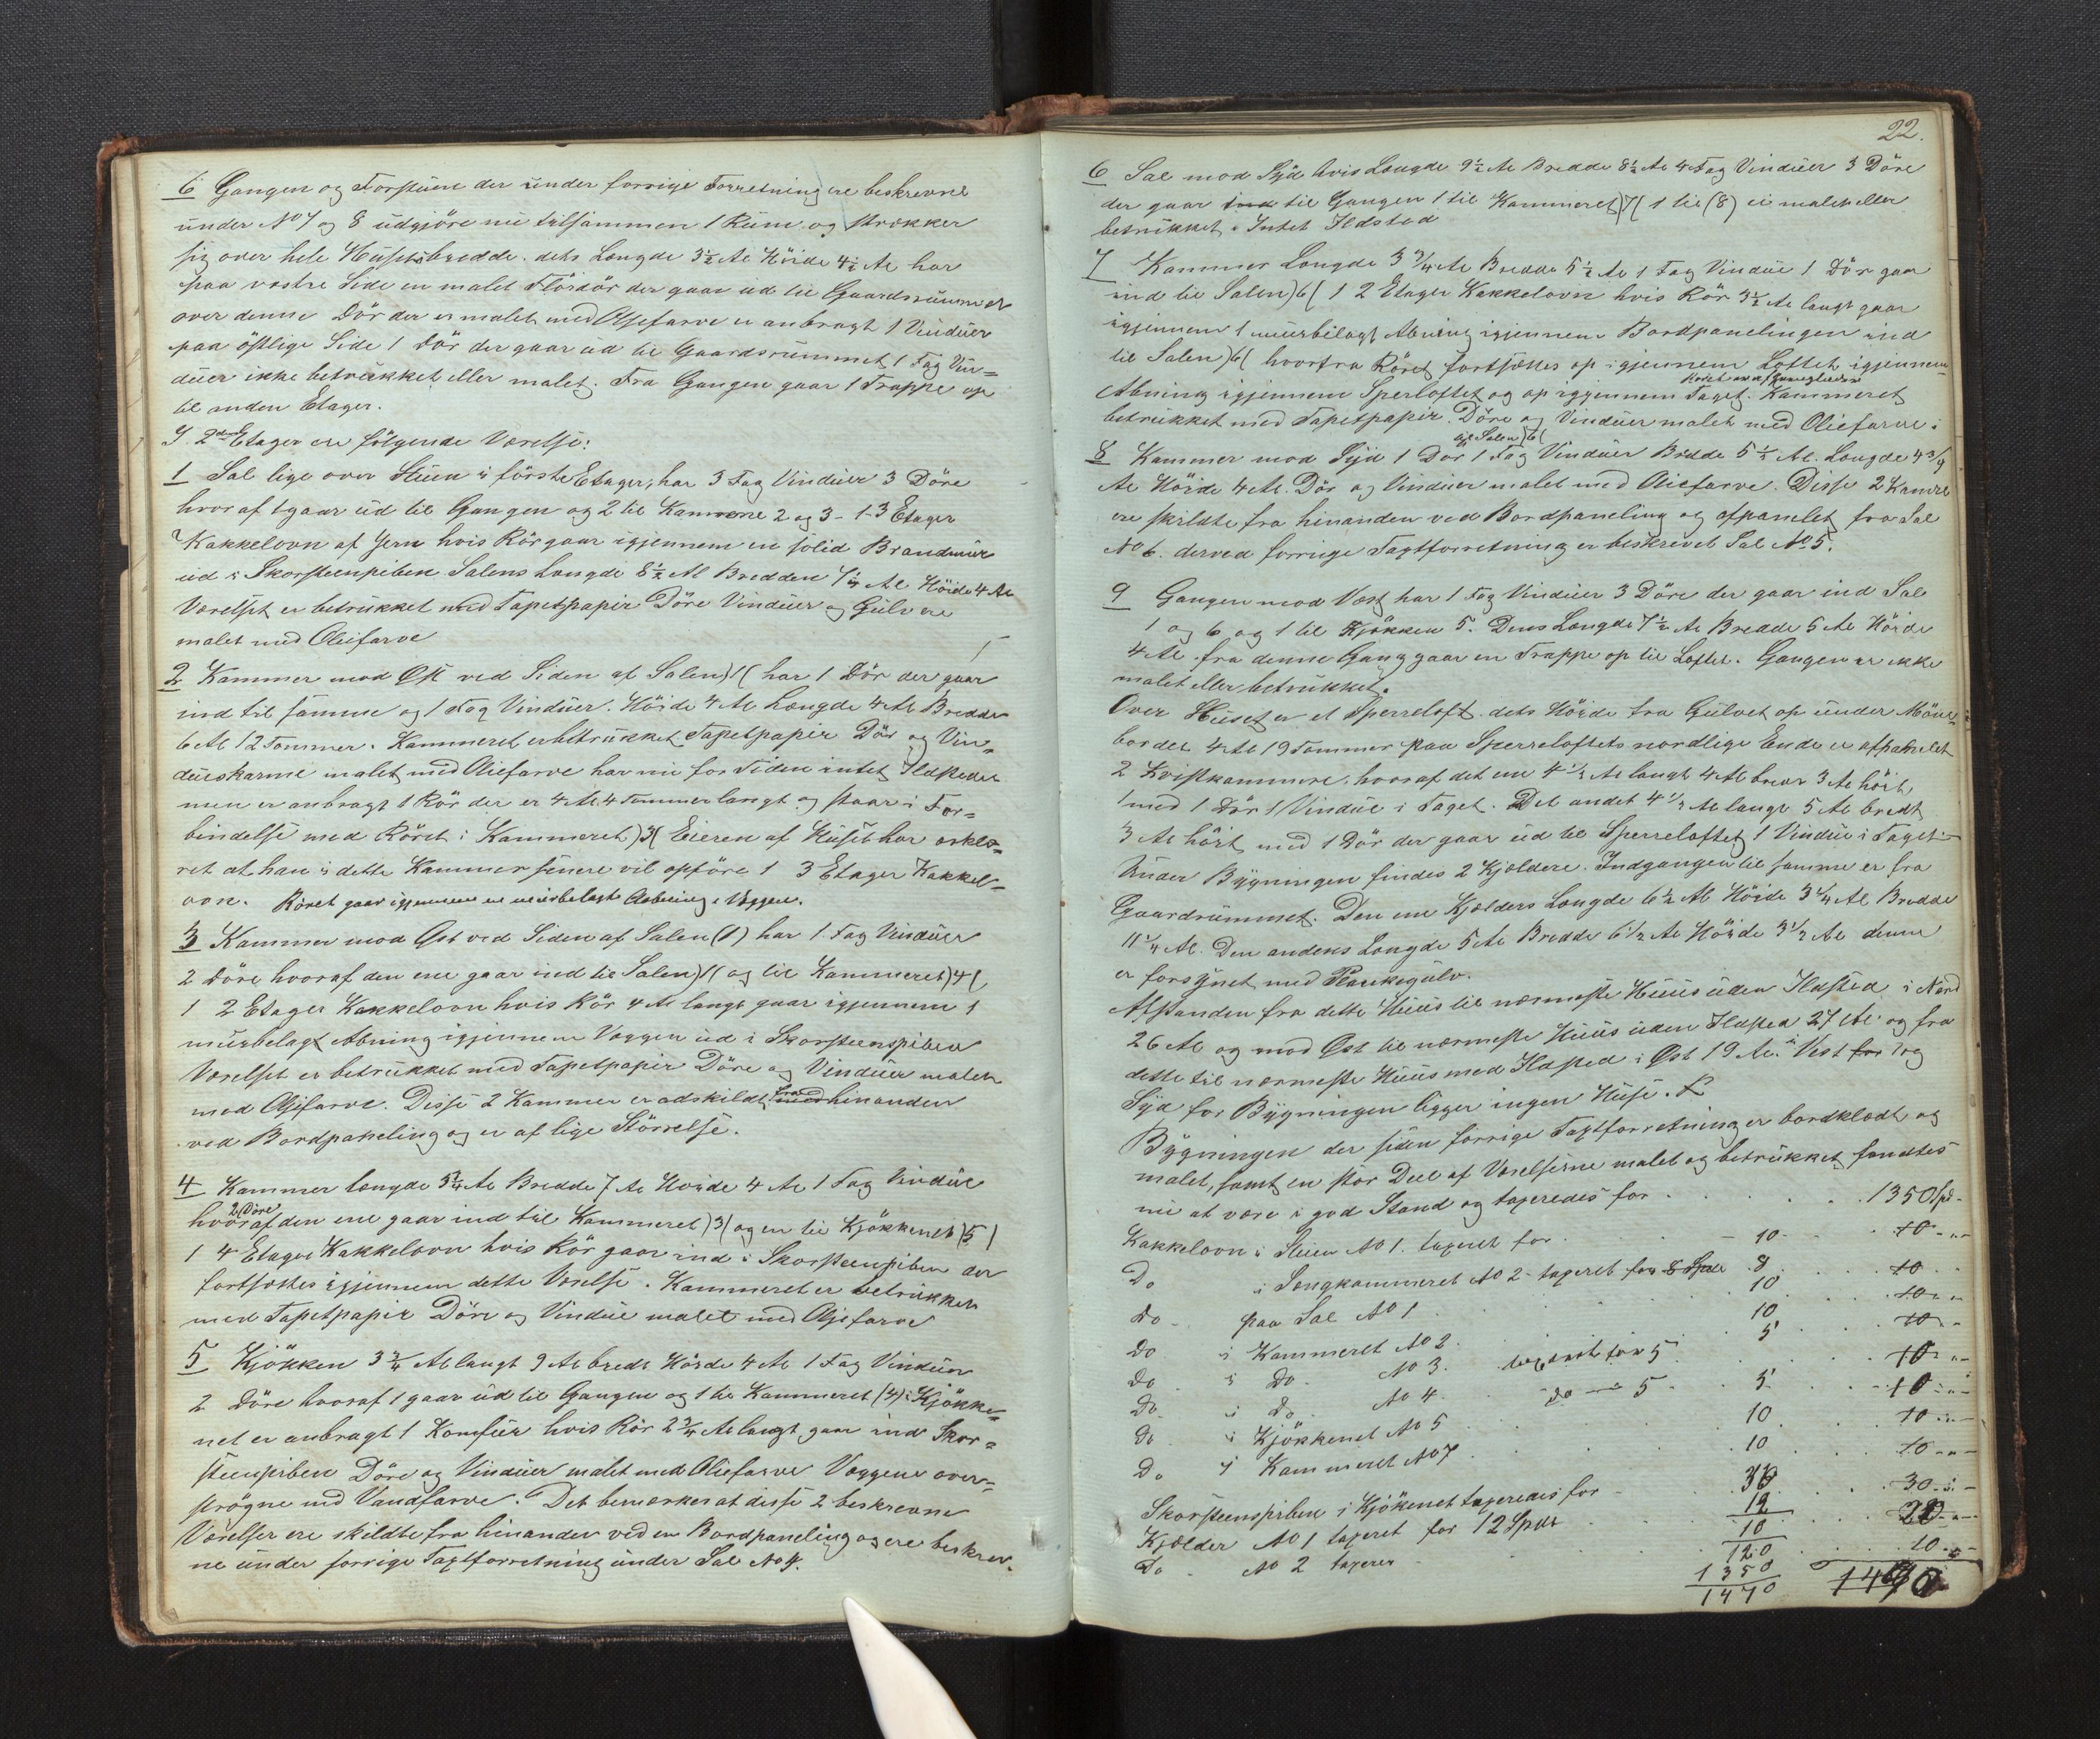 6 Gangen og Forstuen der under forrige Forretning ere beskrevne
under No 7 og 8 udgjöre nu tilsammen 1 Rum og strækker
sig over hele Husets bredde. dets Længde 3½ Al Höide 4½ Al har
paa vestre Side en malet Flöidör der gaar ud til Gaardsrummet
over denne Dör der er malet med Oljefarve er anbragt 1 Vinduer
paa östlige Side 1 Dör der gaar ud til Gaardsrummet 1 Fag Vin=
duer ikke betrukket eller malet. Fra Gangen gaar 1 Trappe op
til anden Etage.
I 2den Etage ere fölgende Værelse:
1 Sal lige over Stuen i förste Etager, har 3 Fag Vinduer 3 Döre
hvoraf 1 gaar ud til Gangen og 2 til Kamrene 2 og 3 - 1-3 Etager
Kakkelovn af Jern hvis Rör gaar igjennem en solid Brandmur
ud i Skorsteenpiben Salens Længde 8½ Al Bredden 7½ Al Höide 4 Al
Værelset er betrukket med Tapetpapir Döre Vinduer og Gulv ere
malet med Oliefarve
2 Kammer mod Öst ved Siden af Salen )1( har 1 Dör der gaar
ind til samme og 1 Fag Vinduer. Höide 4 Al Længde 4 Al Bredde
6 Al 12 Tommer. Kammeret er betrukket Tapetpapir Dör og Vin=
dueskarme malet med Oliefarve har nu for Tiden intet Ildsteder
men er anbragt 1 Rör der er 4 Al. 4 Tommer langt og staar i For=
bindelse med Röret i Kammeret )3( Eieren af Huset har erklæ=
ret at han i dette Kammer senere vil opföre 1 3 Etager Kakkel=
ovn. Röret gaar igjennem en muurbelagte Aabning i Væggen.
3 Kammer mod Öst ved Siden af Salen (1) har 1 Fag Vinduer
2 Döre hvoraf den ene gaar ind til Salen )1( og til Kammeret )4(
1 2 Etager Kakkelovn hvis Rör 4 Al langt gaar igjennem 1
murbelagt Abning igjennem Væggen ud i Skorsteenspiben
Værelset er betrukket med Tapetpapir Döre og Vinduer malet
med Oljefarve. Disse 2 Kammer er adskildt fra med hinanden
ved Bordpaneling og er af lige Störrelse.
4 Kammer længde 3¾ Al Bredde 7 Al Höide 4 Al 1 Fag Vindue
2 Döre
hvoraf den ene gaar ind til Kammeret )3( og en til Kjökkenet )5(
1 4 Etager Kakkelovn hvis Rör gaar ind i Skorsteenpiben der
fortsættes igjennem dette Værelse. Kammeret er betrukket
med Tapetpapir Döre og Vindue malet med Oljefarve
5 Kjökken 3¾ Al langt 9 Al bredt Höide 4 Al 1 Fag Vinduer
2 Döre hvoraf 1 gaar ud til Gangen og 1 til Kammeret (4) i Kjökke=
net er anbragt 1 Komfuer hvis Rör 2¾ Al langt gaar ind Skor=
steenpiben Döre og Vinduer malet med Oliefarve Væggene over=
strögne med Vandfarve. Det bemærkes at disse 2 beskrevne
Værelser ere skildte fra hinanden ved en Bordpaneling og ere beskrev=
ne under forrige Taxtforretning under Sal No 4.
22.
6 Sal mod Syd hvis Længde 9½ Al Bredde 8½ Al 4 Fag Vinduer 3 Döre
der gaar ind til Gangen 1 til Kammeret )7( 1 til (8) ei malet eller
betrukket. Intet Ildsted
7 Kammer Længde 3¾ Al Bredde 5½ Al 1 Fag Vindue 1 Dör gaar
ind til Salen )6( 1 2 Etager Kakkelovn hvis Rör 3½ Al langt gaar
igjennem 1 muurbelagt Abning igjennem Bordpanelingen ind
til Salen )6( hvorfra Röret fortsættes op igjennem Loftet igjennem
Abning igjennem Sperloftet og op igjennem Taget. Kammeret
betrukket med Tapetpapir. Döre og Vinduer malet med Oliefarve i
til Salen )6(
8 Kammer mod Syd 1 Dör 1 Fag Vinduer Bredde 5½ Al. Længde 4¾
Al Höide 4 Al. Dör og Vinduer malet med Oliefarve. Disse 2 Kamre
ere skildte fra hinanden ved Bordpaneling og afpanelet fra Sal
No 6. derved forrige Taxtforretning er beskrevet Sal No 5.
9 Gangen mod Vest har 1 Fag Vinduer 3 Döre der gaar ind Sal
1 og 6 og 1 til Kjökken 5. Dens Længde 7½ Al Bredde 5 Al Höide
4 Al. fra denne Gang gaar en Trappe op til Loftet. Gangen er ikke
malet eller betrukket.
Over Huset er et Sperreloft. dets Höide fra Gulvet op under Möne=
bordet 4 Al 19 Tommer paa Sperreloftets nordlige Ende er afpanelet
2 Kvistkammere, hvoraf det ene 4½ Al langt 4 Al bredt 3 Al höit,
med 1 Dör 1 Vindue i Taget. Det andet 4½ Al langt 5 Al bredt
3 Al höit med 1 Dör der gaar ud til Sperreloftet 1 Vindue i Taget
Under Bygningen findes 2 Kjældere. Indgangen til samme er fra
Gaardrummet. Den ene Kjælders Længde 6½ Al Höide 3¼ Al Bredde
11¼ Al. Den andens Længde 5 Al Bredde 6½ Al Höide 3½ Al denne
er forsynet med Plankegulv.
Afstanden fra dette Huus til nærmeste Huus uden Ildsted i Nord
26 Al og mod Öst til nærmeste Huus uden Ildsted 27 Al og fra
dette til nærmeste Huus med Ildsted i Öst 19 Al. I Vest for og
Syd for Bygningen ligger ingen Huse.
Bygningen der siden forrige Taxtforretning er bordklædt og
malet, samt en stor Deel af Værelserne malet og betrukket fandtes
nu at være i god Stand og taxeredes for . . . 1350 Spd.
Kakkelovn i Stuen No 1. taxeret for . 10 . 10 . " -
Do i Sengkammeret No 2 taxeret for 8 Spd 8 . 10 . .
Do paa Sal No 1 . 10 . 10 . "
Do i Kammeret No 2 . 10 . 10 . -
Do i Do No 3. taxeret for 5 . 5 . 10 . " -
Do i Do No 4 . do - 5 . 5 . 10 . " -
Do i Kjökkenet No 5 . 10 . 10 . " -
Do i Kammeret No 7 . 10 . 10 . " -
Skorsteenspiben i Kjökenet taxeredes for . 30 . 30 . " -
Kjælder No 1 taxeret for 12 Spdr . 12 . 20 . " -
Do No 2 taxeres . 10 . 10 . " -
120
1350
1470 1490